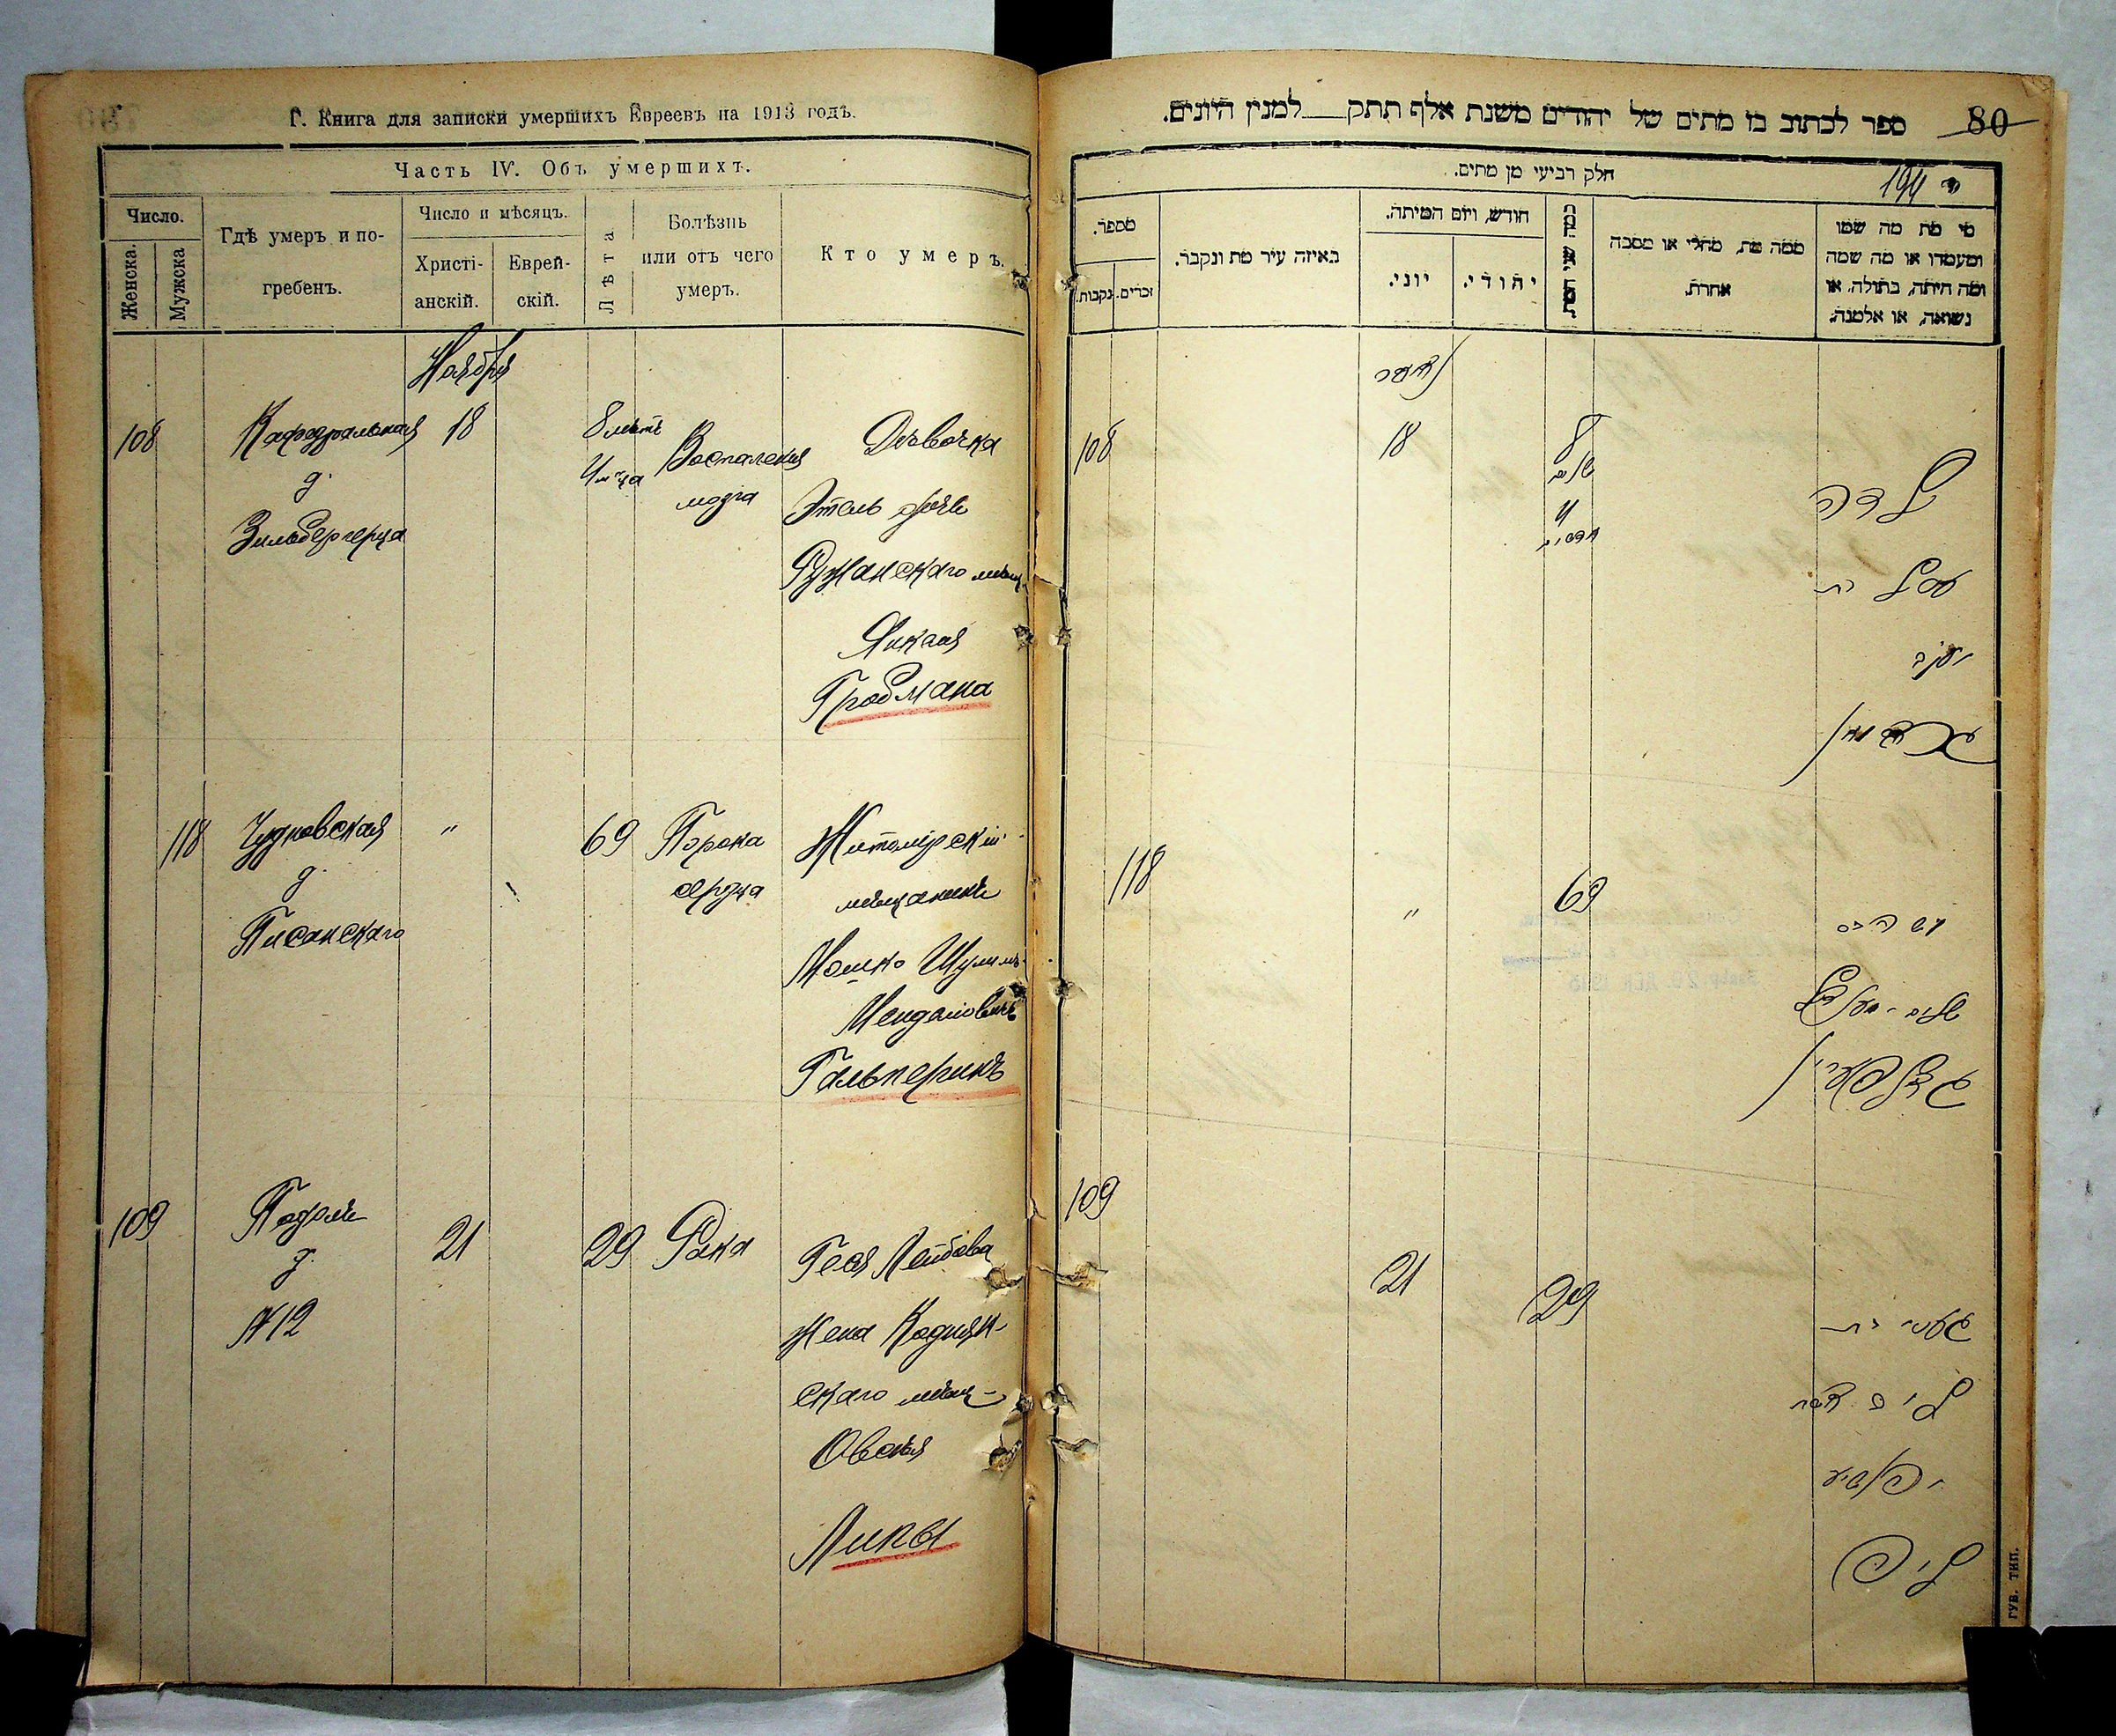 Г. Книга для записки умершихъ Евреевъ на 1913 годъ.
Часть IV. Объ умершихъ.
Число.
Женска.
Мужска
Гдѣ умеръ и по-
гребенъ.
Число и мѣсяцъ.
Христі-
анскій.
Еврей-
скій.
Лѣта
Болѣзнь
или отъ чего
умеръ.
Кто умеръ.
Ноября
108
Кафедральная
д.
Зильбергерца
18
8 лѣтъ
4 м-ца
Воспаленія
мозга
Дѣвочка
Этель дочь
Ружанскаго мѣщ.
Янкеля
Гробмана
118
Чудновская
д.
Писанскаго
"
69
Порока
сердца
Житомірскій
мѣщанинъ
Мошко Шулимъ
Менделовичъ
Гальперинъ
109
Подолъ
д.
№12
21
29
Рака
Гося Лейбова
жена Кодня-
скаго мѣщ-
Овсея
Липы
ספר לכתוב בו מתים של יהודים משנת אלף תתק למנין היונים.
80
חלק רביעי מן מתים.
194
מספר.
נקבות.
זכרים.
באיזה עיר מת ונקבר.
חודש, ויום המיתה.
יוני.
יהודי.
כמה שני המת.
ממה מת, מחלי או מסבה
אחרת.
מי מת מה שמו
ומעמדו או מה שמה
ומה היתה, בתולה, או
נשואה, או אלמנה.
108
18
8
4
ילדה
עטל בת
יעקב
גראבמאן
118
"
69
משה
שלום מענדל
גאלפערין
109
21
29
בת
ליב אשת
ליפ
ГУБ. ТИП.